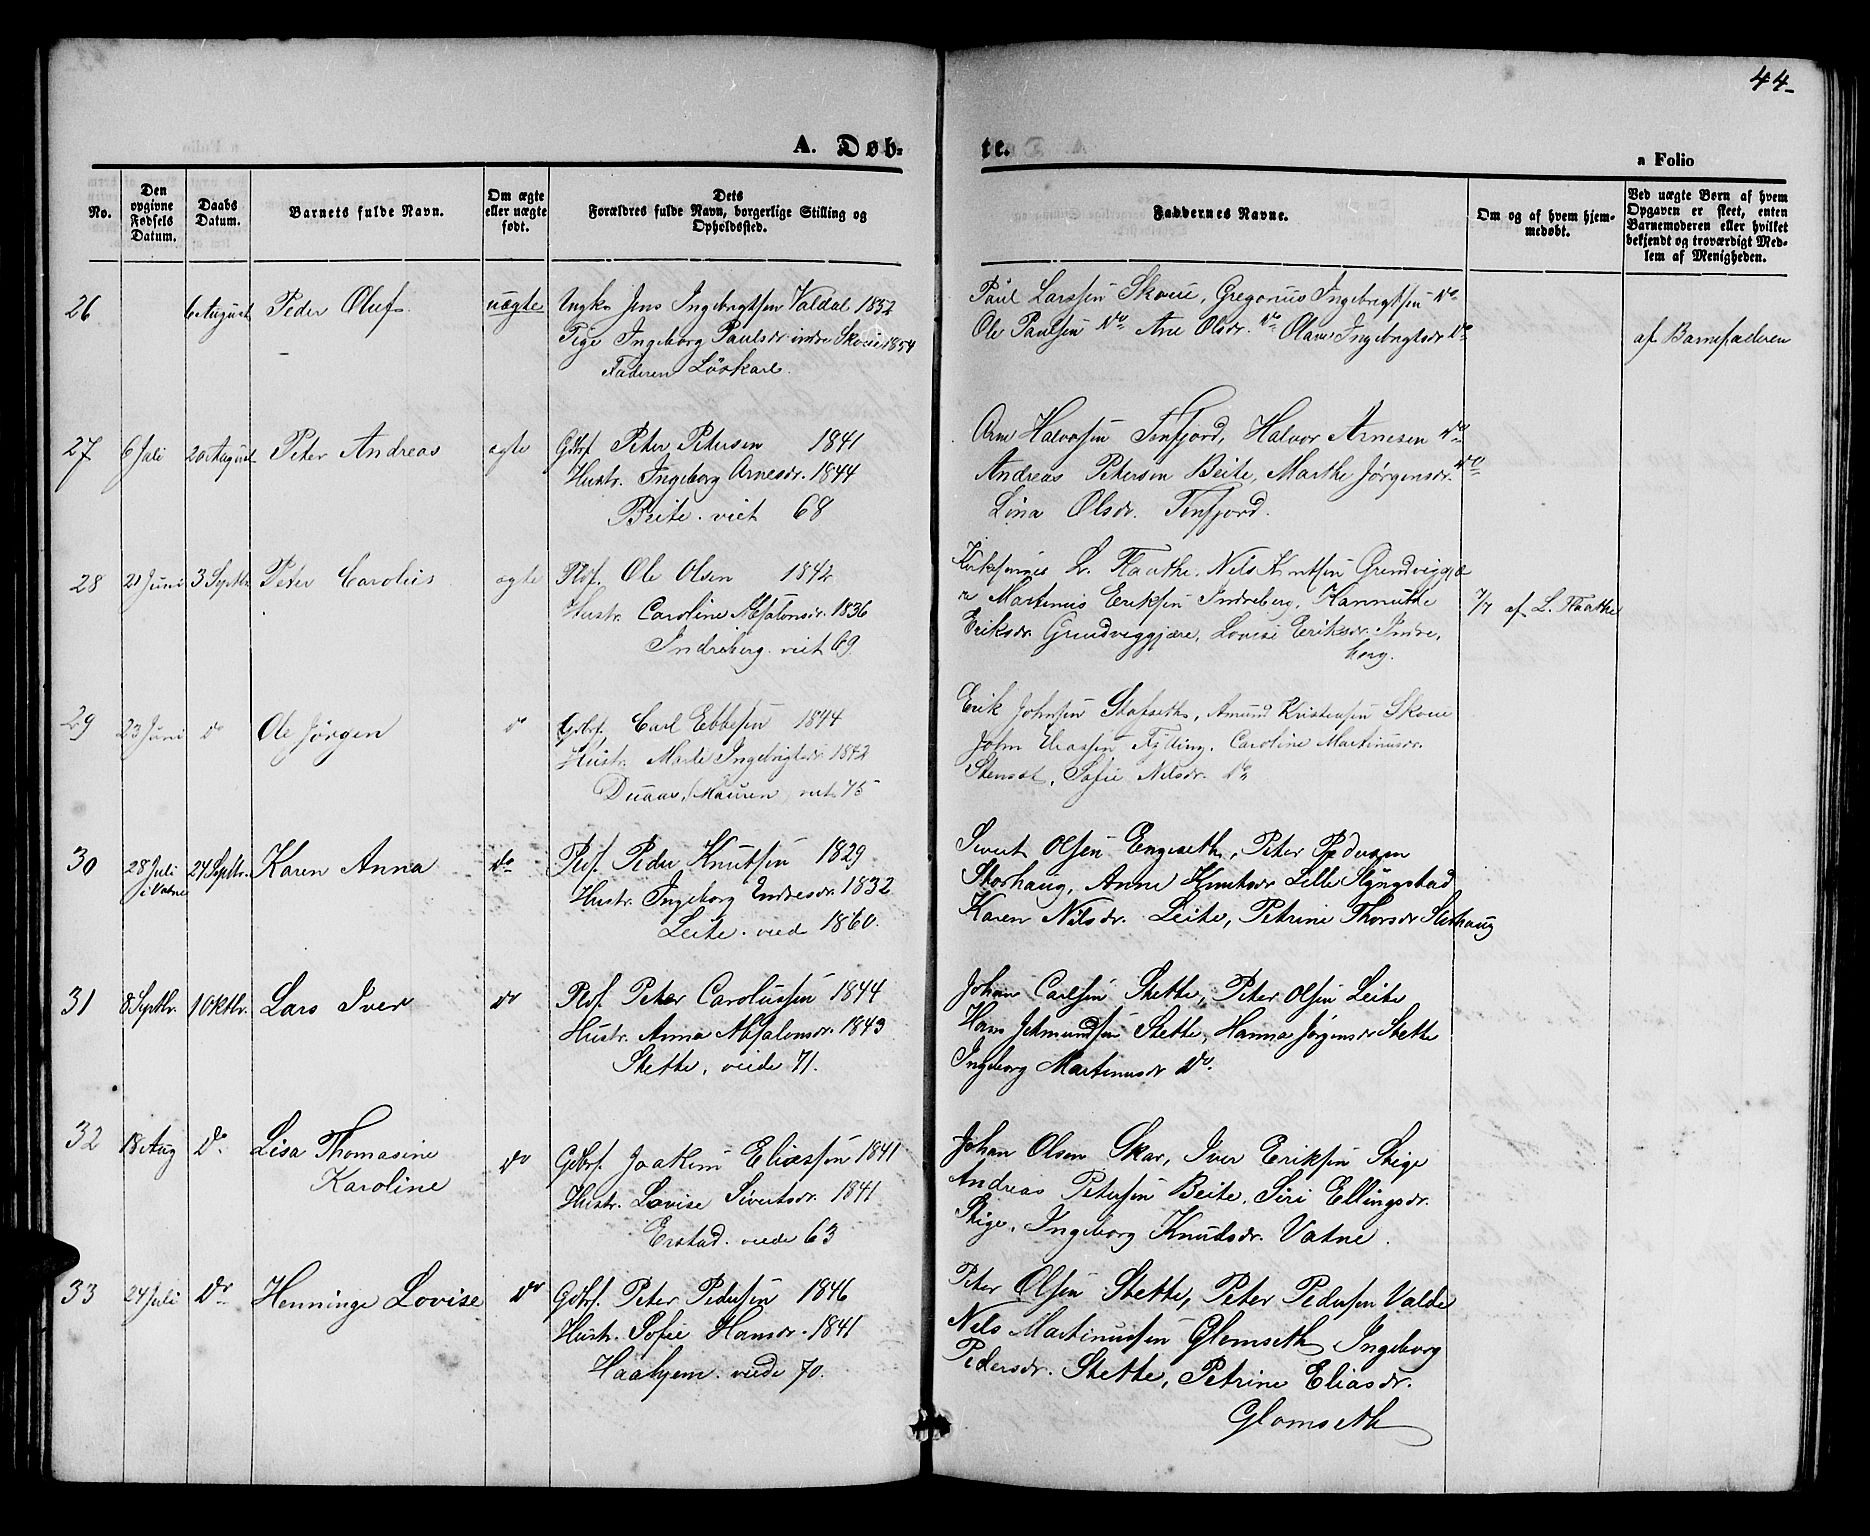 44
A. Døb-
te.
a Folio
No.
Den opgivne Fødsels Datum.
Daabs Datum.
Barnets fulde Navn.
Om ægte eller uægte født.
Dets Forældres fulde Navn, borgerlige Stilling og Opholdssted.
Faddernes Navne.
Om og af hvem hjemmedøbt.
Ved uægte Børn af hvem Opgaven er skeet, enten Barnemoderen eller hvilket bekjendt og troværdigt Medlem af Menigheden.
26
6 August
Peder Oluf
uægte
Ungk. Jens Ingebrigtsen Valdal 1852
Pige Ingeborg Paulsdr. indre Skoue 1854
Faderen Löskarl.
Paul Larssen Skoue, Gregorius Ingebrigtsen do
Ole Paulsen do Ane Olsdr. do Olave Ingebrigtsdr do
af Barnefaderen
27
6 Juli
20 August
Peter Andreas
ægte
Gdbr. Peter Petersen 1841
Hustr. Ingeborg Arnesdr. 1844
Beite. viet 68
Arn Halvorsen Tenfjord, Halvor Arnesen do
Andreas Petersen Beite, Marthe Jørgensdr. do
Lina Olsdr. Tenfjord.
28
21 Juni
3 Septbr
Peter Carolius
ægte
Pldsf. Ole Olsen 1842
Hustr. Caroline Absalonsdr. 1836
Indreberg. viet 69.
L. Flaathe. Nils Knutsen Grundviggjæ
re Martinus Eriksen Indreberg,
Eriksdr. Grundviggjære, Lovise Eriksdr. Indre,
berg.
7/7 af L. Flaathe
29
23 Juni
do
Ole Jørgen
do
Gdbr. Carl Ebbesen 1844
Hustr. Marte Ingebrigtsdr. 1842
viet 75
Erik Johnsen Stafseth, Amund Kristensen Skoue
John Eliassen Fylling. Caroline Martinusdr.
Sofie Nilsdr. do
30
28 Juli
i Vatne
24 Septbr.
Karen Anna
do
Pldsf. Peder Knutsen 1829
Hustr. Ingeborg Endresdr. 1832
Leite. viede 1860.
Sivert Olsen Engeseth, Peter Pedersen
Storhaug, Anne Knutsdr Lille Slyngstad
Karen Nilsdr. Leite, Petrine Thorsdr Storhaug
31
8 Septbr.
1 Oktbr.
Lars Iver
do
Pldsf. Peter Carolussen 1844
Hustr. Anna Absalonsdr. 1843
Stette, viede 71.
Johan Carlsen Stette, Peter Olsen Leite
Hans Jetmundsen Stette, Hanna Jørgensdr Stette
Ingeborg Martinusdr do.
32
18 Aug
do.
Lisa Thomasine
Karoline
do
Gdbr. Joakim Eliassen 1841
Hustr. Lovise Sivertsdr. 1841.
Erstad. viede 63
Johan Olsen Skar, Iver Eriksen Stige
Andreas Petersen Beite. Siri Ellingsdr.
Stige, Ingeborg Knutsdr. Vatne.
33
24 Juli
do
Henninge Lovise
do
Gdbr. Peter Pedersen 1846
Hustr. Sofie Hansdr. 1841
Haahjem. viede 70.
Peter Olsen Stette, Peter Pedersen Valde
Nils Martinussen Glomseth Ingeborg
Pedersdr. Stette, Petrine Eliasdr.
Glomseth